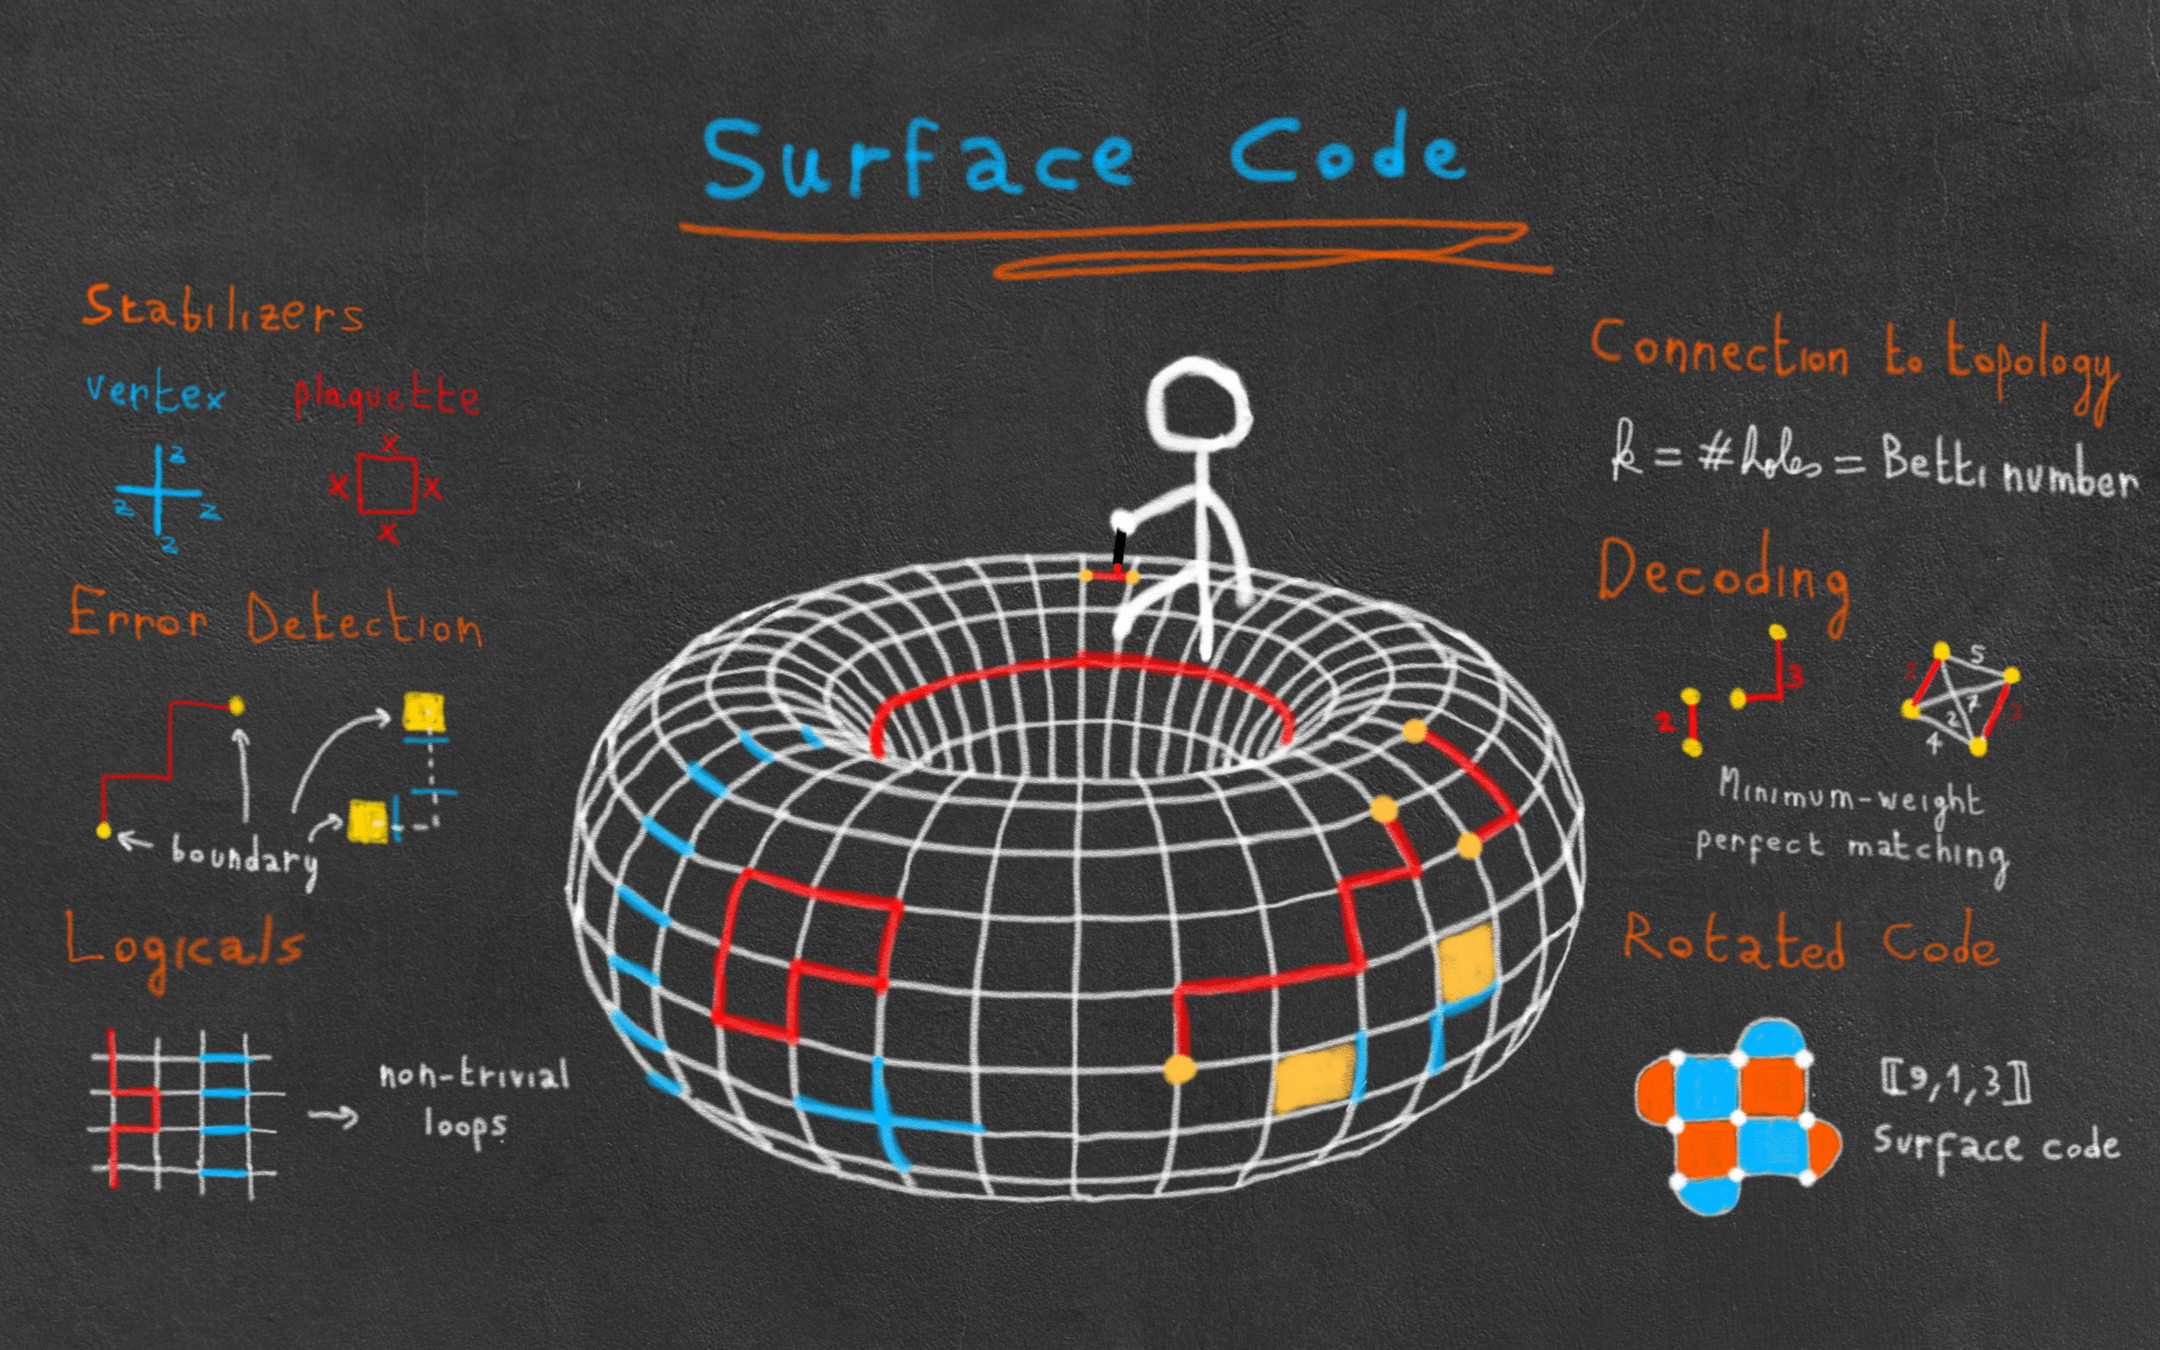 Surface Code
Stabilizers
vertex plaquette
z
z z
z
x
x x
x
Error Detection
boundary
Logicals
non-trivial
loops
Connection to topology
k = #holes = Betti number
Decoding
3
2
2 5
7
2 3
4
Minimum-weight
perfect matching
Rotated Code
⟦9,1,3⟧
Surface code